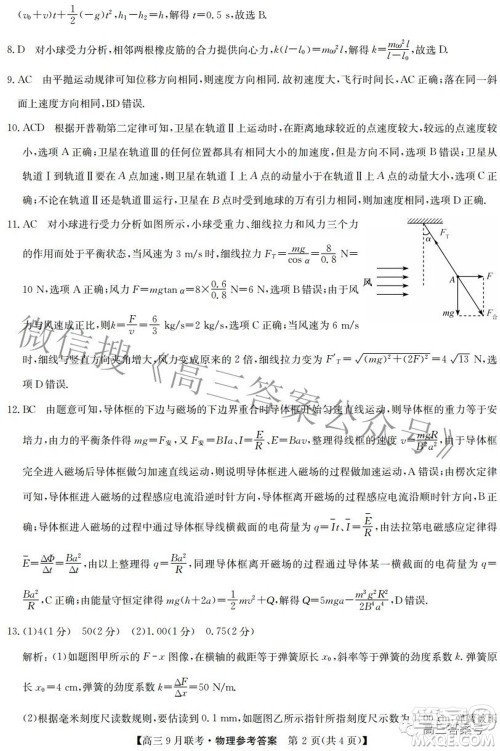 (v₀+v)t+½(-g)t²,h₁-h₂=h,解得 t=0.5 s,故选 B.
8. D 对小球受力分析,相邻两根橡皮筋的合力提供向心力,k(l-l₀)=mω²l,解得 k=mω²l/(l-l₀),故选 D.
9. AC 由平抛运动规律可知位移方向相同,则速度方向相同.故初速度大,飞行时间长,AC 正确;落在同一斜
面上速度方向相同,BD 错误.
10. ACD 根据开普勒第二定律可知,卫星在轨道Ⅱ上运动时,在距离地球较近的点速度较大,较远的点速度较
小,选项 A 正确;卫星在轨道Ⅲ的任何位置都具有相同大小的加速度,但是方向不同,选项 B 错误;卫星从
轨道Ⅰ到轨道Ⅱ要在 A 点加速,则在轨道Ⅰ上 A 点的动量小于在轨道Ⅱ上 A 点的动量,选项 C 正确;不论
是在轨道Ⅱ还是轨道Ⅲ运行,卫星在 B 点时受到地球的万有引力相同,则加速度相同,选项 D 正确.
11. AC 对小球进行受力分析如图所示,小球受重力、细线拉力和风力三个力
的作用而处于平衡状态,当风速为 3 m/s 时,细线拉力 F_T=mg/cos α=8/0.8 N=
10 N,选项 A 正确;风力 F=mgtan α=8×0.6/0.8 N=6 N,选项 B 错误;由于风
力与风速成正比,则 k=F/v=6/3 kg/s=2 kg/s,选项 C 正确;当风速为 6 m/s
时,细线与竖直方向夹角增大,风力变成原来的 2 倍,细线拉力变为 F′_T=√((mg)²+(2F)²)=4√13 N,选
项 D 错误.
α
F_T
风
A
F
mg
F合
12. BC 由题意可知,导体框的下边与磁场的下边界重合时导体框开始匀速直线运动,则导体框的重力等于安
培力,由平衡条件得 mg=F安,又 F安=BIa、I=E/R、E=Bav,整理得导体框匀速的速度 v=mgR/B²a²,由于导体框
完全进入磁场后导体框做匀加速直线运动,则说明导体框进入磁场的过程做加速运动,A 错误;由楞次定律
可知,导体框进入磁场的过程感应电流沿逆时针方向,导体框离开磁场的过程感应电流沿顺时针方向,B 正
确;导体框进入磁场的过程中通过导体框导线横截面的电荷量为 q=Īt、Ī=Ē/R,由法拉第电磁感应定律得
Ē=ΔΦ/Δt=Ba²/Δt,由以上整理得 q=Ba²/R,同理导体框离开磁场的过程通过导体某一横截面的电荷量为 q=
Ba²/R,C 正确;由能量守恒定律得 mg(h+2a)=½mv²+Q,解得 Q=5mga-m³g²R²/2B⁴a⁴,D 错误.
13. (1)4(1 分) 50(2 分) (2)1.00(1 分) 0.75(2 分)
解析:(1)如题图甲所示的 F-x 图像,在横轴的截距等于弹簧原长 x₀,斜率等于弹簧的劲度系数,故弹簧原
长 x₀=4 cm,弹簧的劲度系数 k=ΔF/Δx=50 N/m.
(2)根据毫米刻度尺读数规则,要估读到 0.1 mm,如题图乙所示指针所指刻度尺读数为
【高三 9 月联考·物理参考答案 第 2 页(共 4 页)】
微信搜《高三答案公众号》